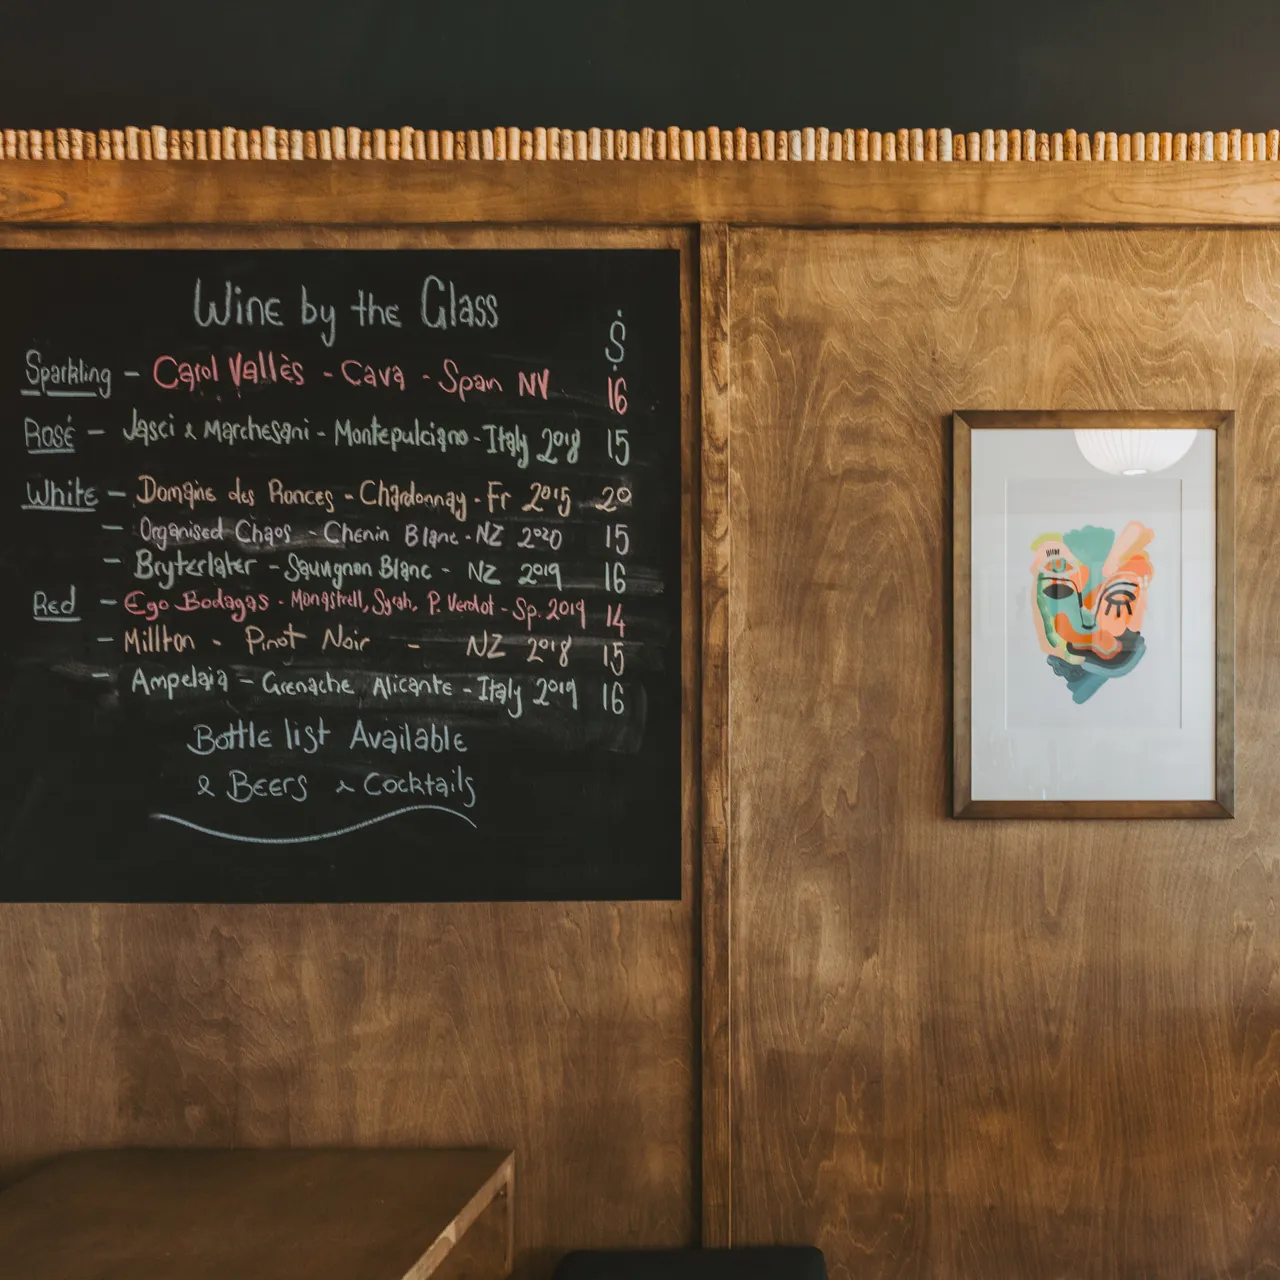 Wine by the Glass
$
Sparkling - Carol Vallès - Cava - Span NV 16
Rosé - Jasci & Marchesani - Montepulciano - Italy 2018 15
White - Domaine des Ronces - Chardonnay - Fr 2015 20
- Organised Chaos - Chenin Blanc - NZ 2020 15
- Bryterlater - Sauvignon Blanc - NZ 2019 16
Red - Ego Bodagas - Monastrell, Syrah, P. Verdot - Sp. 2019 14
- Millton - Pinot Noir - NZ 2018 15
- Ampelaia - Grenache Alicante - Italy 2019 16
Bottle list Available
& Beers & Cocktails